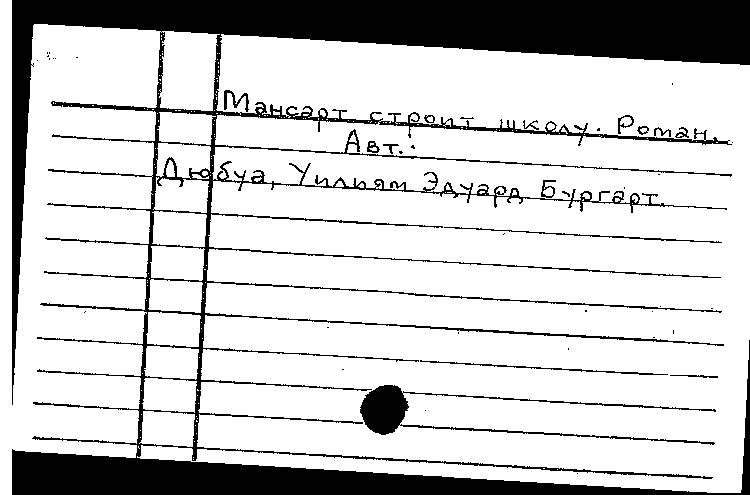 Мансарт строит школу. Роман.
Авт.:
Дюбуа, Уильям Эдуард Бургарт.